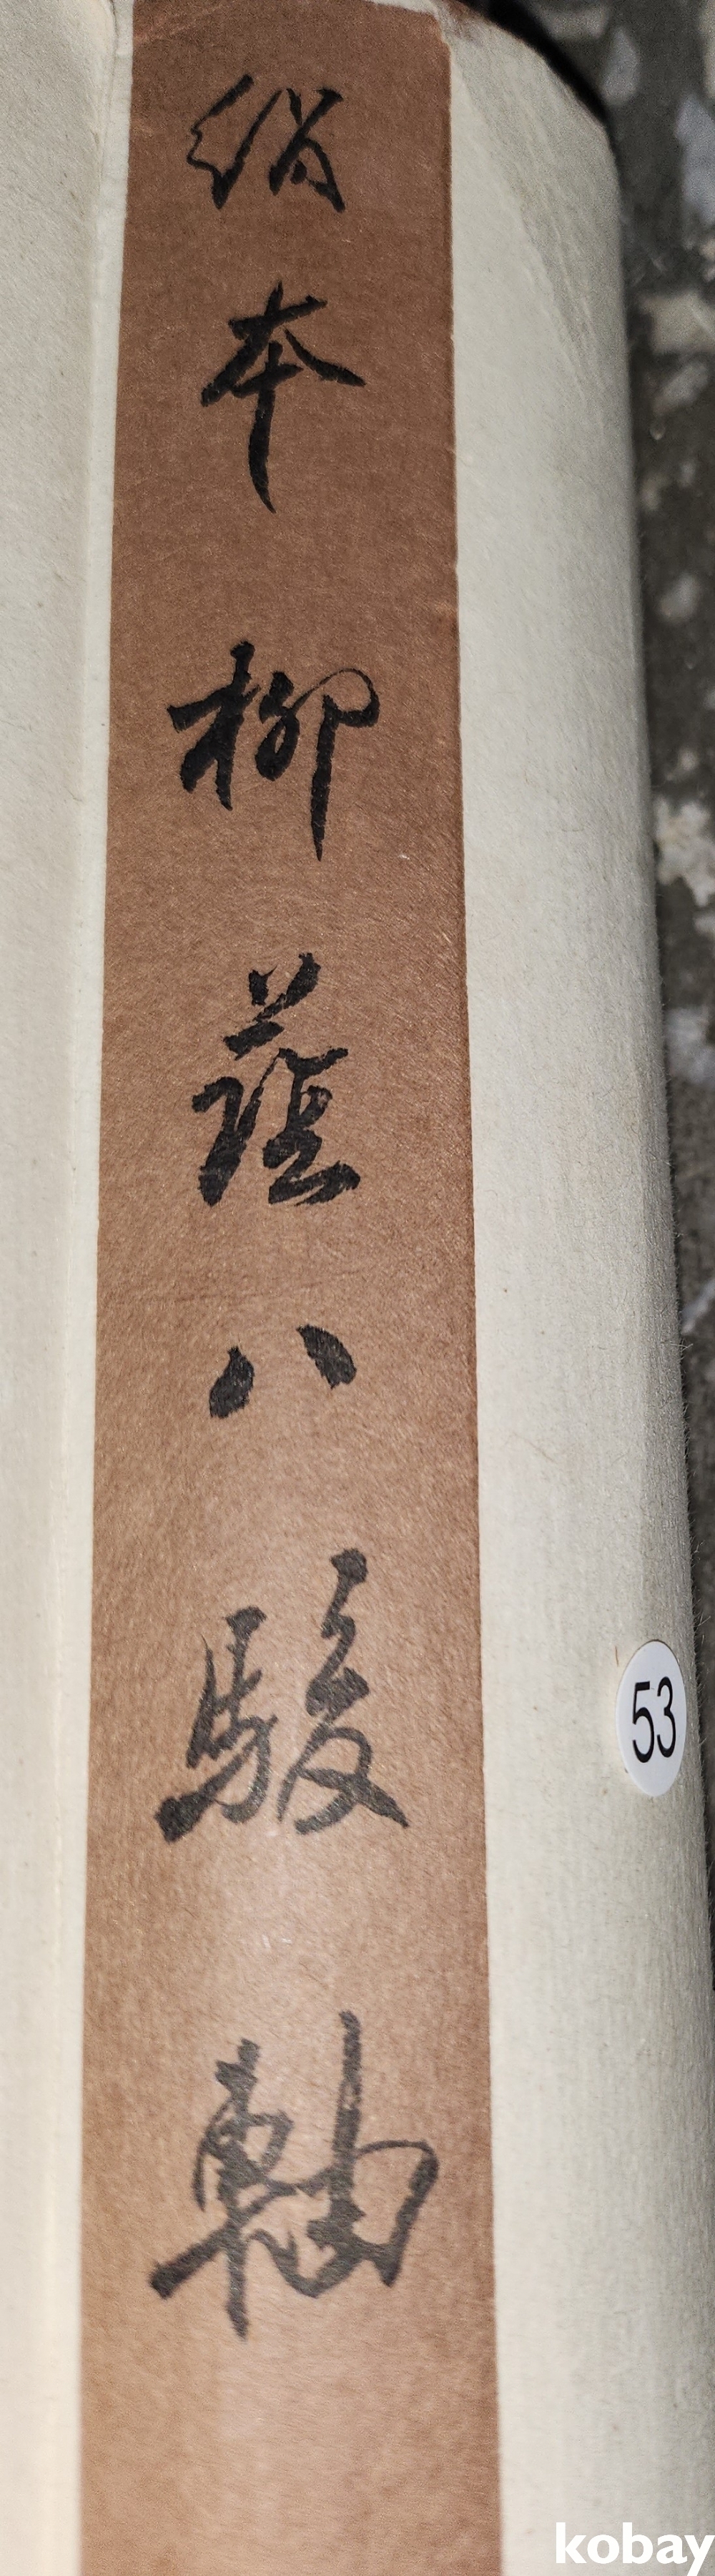 絹本柳蔭八駿軸
53
kobay